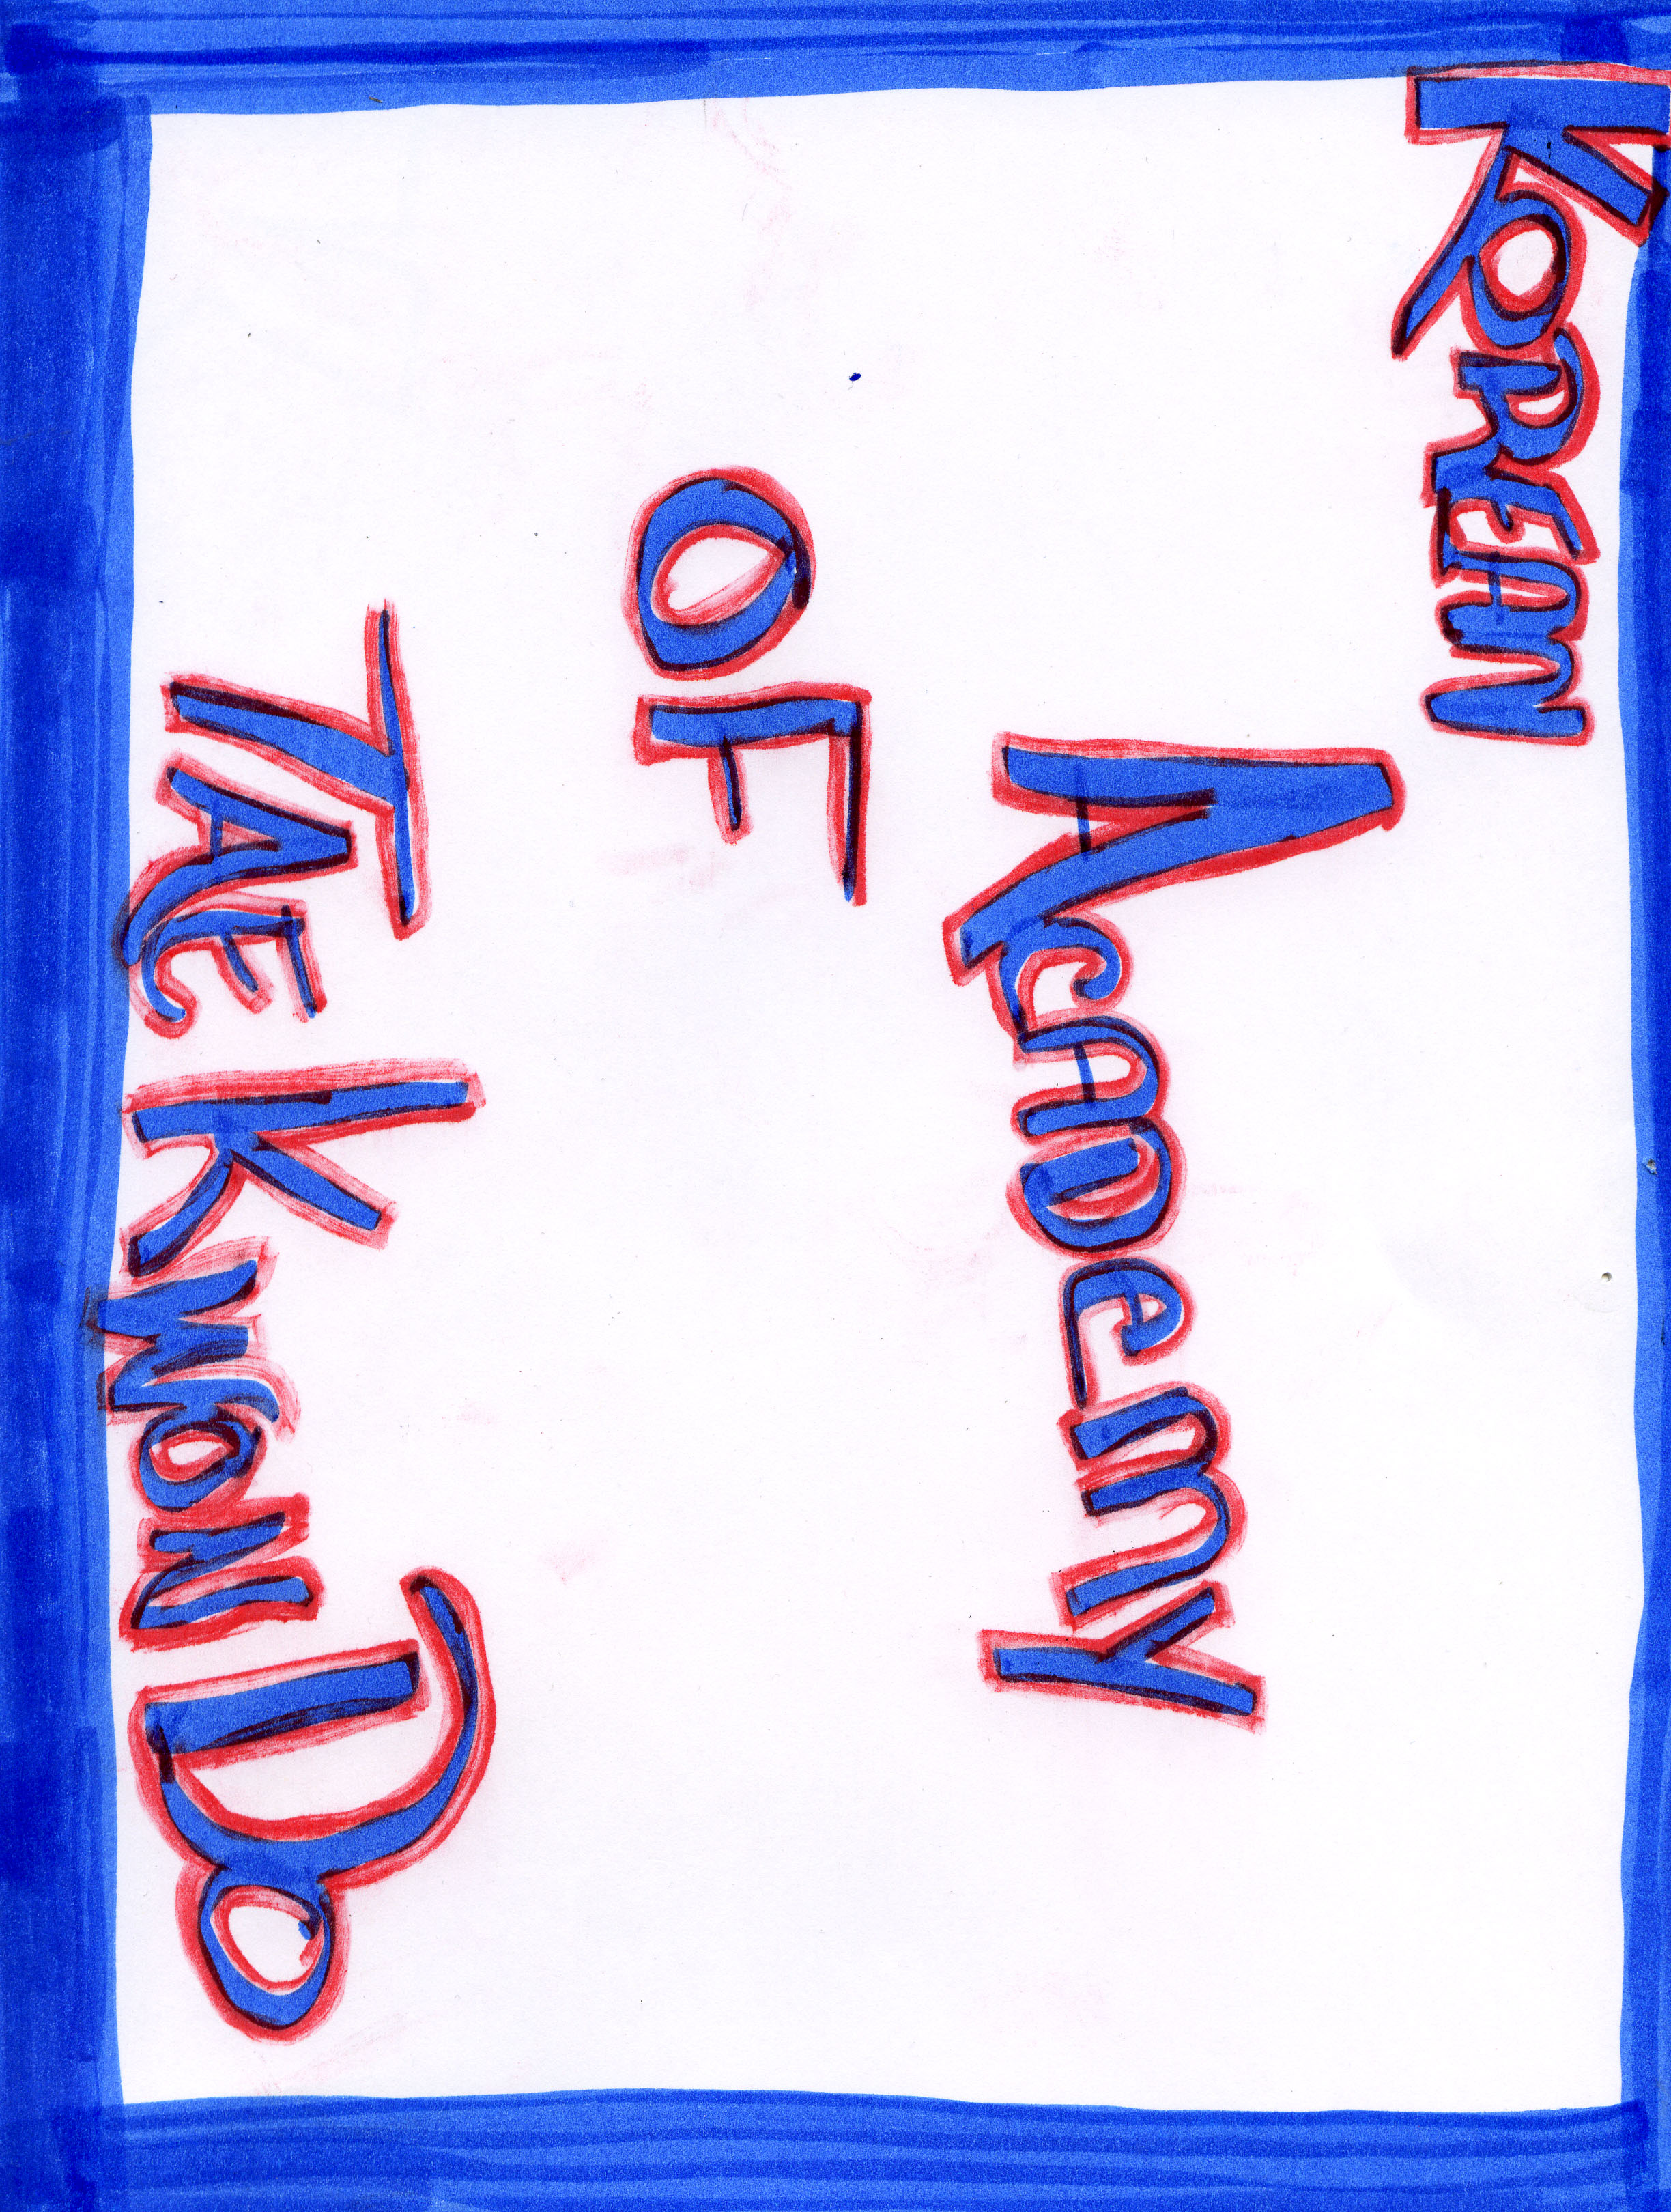 KOREAN
ACADemy
OF
TAE KWON DO